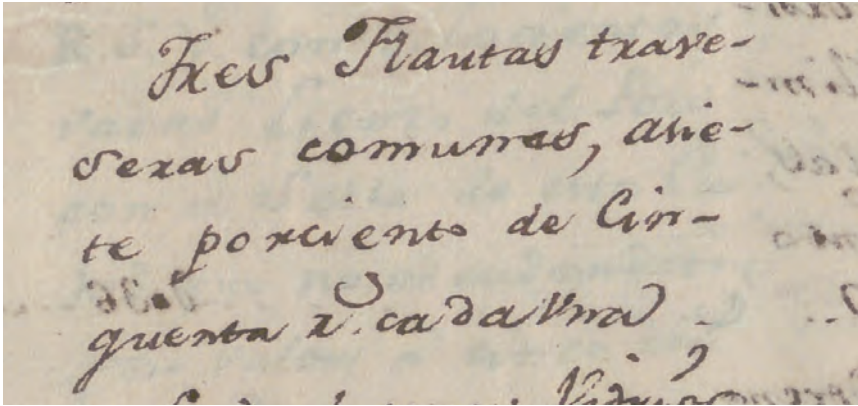 Tres Flautas trave-
seras comunes, asie-
te porciento de Cin-
quenta r.^s cada Vna
Vidrios